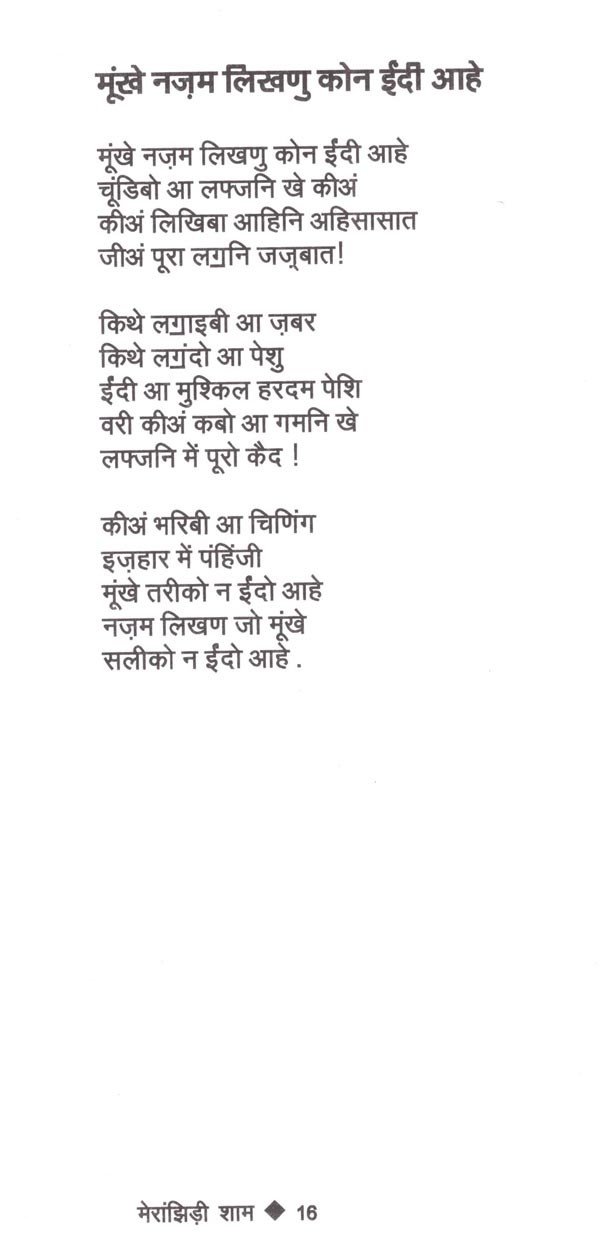 मूंखे नज़म लिखणु कोन ईंदी आहे
मूंखे नज़म लिखणु कोन ईंदी आहे
चूंडिबो आ लफ्जनि खे कीअं
कीअं लिखिबा आहिनि अहिसासात
जीअं पूरा लॻनि जज़्बात!
किथे लॻाइबी आ ज़बर
किथे लॻंदो आ पेशु
ईंदी आ मुश्किल हरदम पेशि
वरी कीअं कबो आ गमनि खे
लफ्जनि में पूरो कैद !
कीअं भरिबी आ चिणिंग
इज़हार में पंहिंजी
मूंखे तरीको न ईंदो आहे
नज़म लिखण जो मूंखे
सलीको न ईंदो आहे .
मेरांझिड़ी शाम ◆ 16